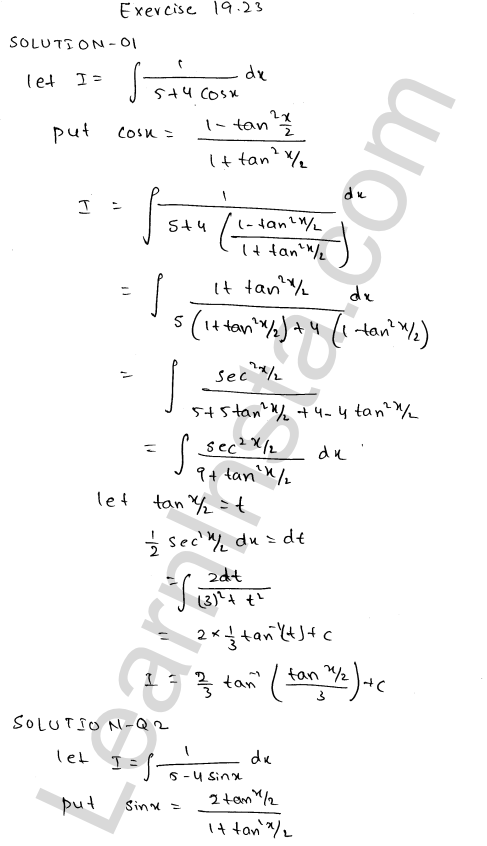 Exercise 19.23
SOLUTION-01
let I = ∫ 1/(5+4 cosx) dx
put cosx = (1 - tan² x/2)/(1 + tan² x/2)
I = ∫ 1/(5+4 ((1-tan² x/2)/(1+tan² x/2))) dx
= ∫ (1+ tan² x/2)/(5(1+tan² x/2)+4(1-tan² x/2)) dx
= ∫ sec² x/2/(5+5tan² x/2+4-4tan² x/2)
= ∫ sec² x/2/(9+tan² x/2) dx
let tan x/2 = t
1/2 sec² x/2 dx = dt
= ∫ 2dt/((3)²+t²)
= 2 × 1/3 tan⁻¹(t)+c
I = 2/3 tan⁻¹ ((tan x/2)/3)+c
SOLUTION-Q2
let I = ∫ 1/(5-4sinx) dx
put sinx = (2tan x/2)/(1+tan² x/2)
LearnInsta.com